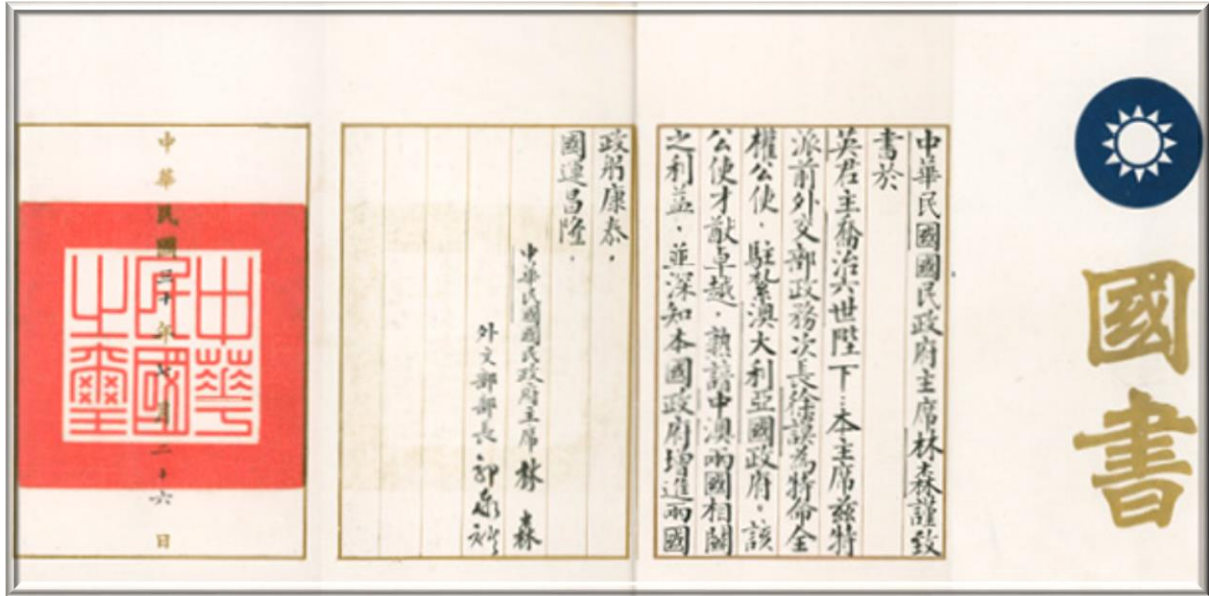 國書
中華民國國民政府主席林森謹致
書於
英君主喬治六世陛下：本主席茲特
派前外交部政務次長徐謨為特命全
權公使，駐紮澳大利亞國政府。該
公使才猷卓越，熟諳中澳兩國相關
之利益，並深知本國政府增進兩國
政躬康泰，
國運昌隆。
中華民國國民政府主席 林 森
外交部部長 郭泰祺
中華民國三十年七月二十六日
中華民國之璽